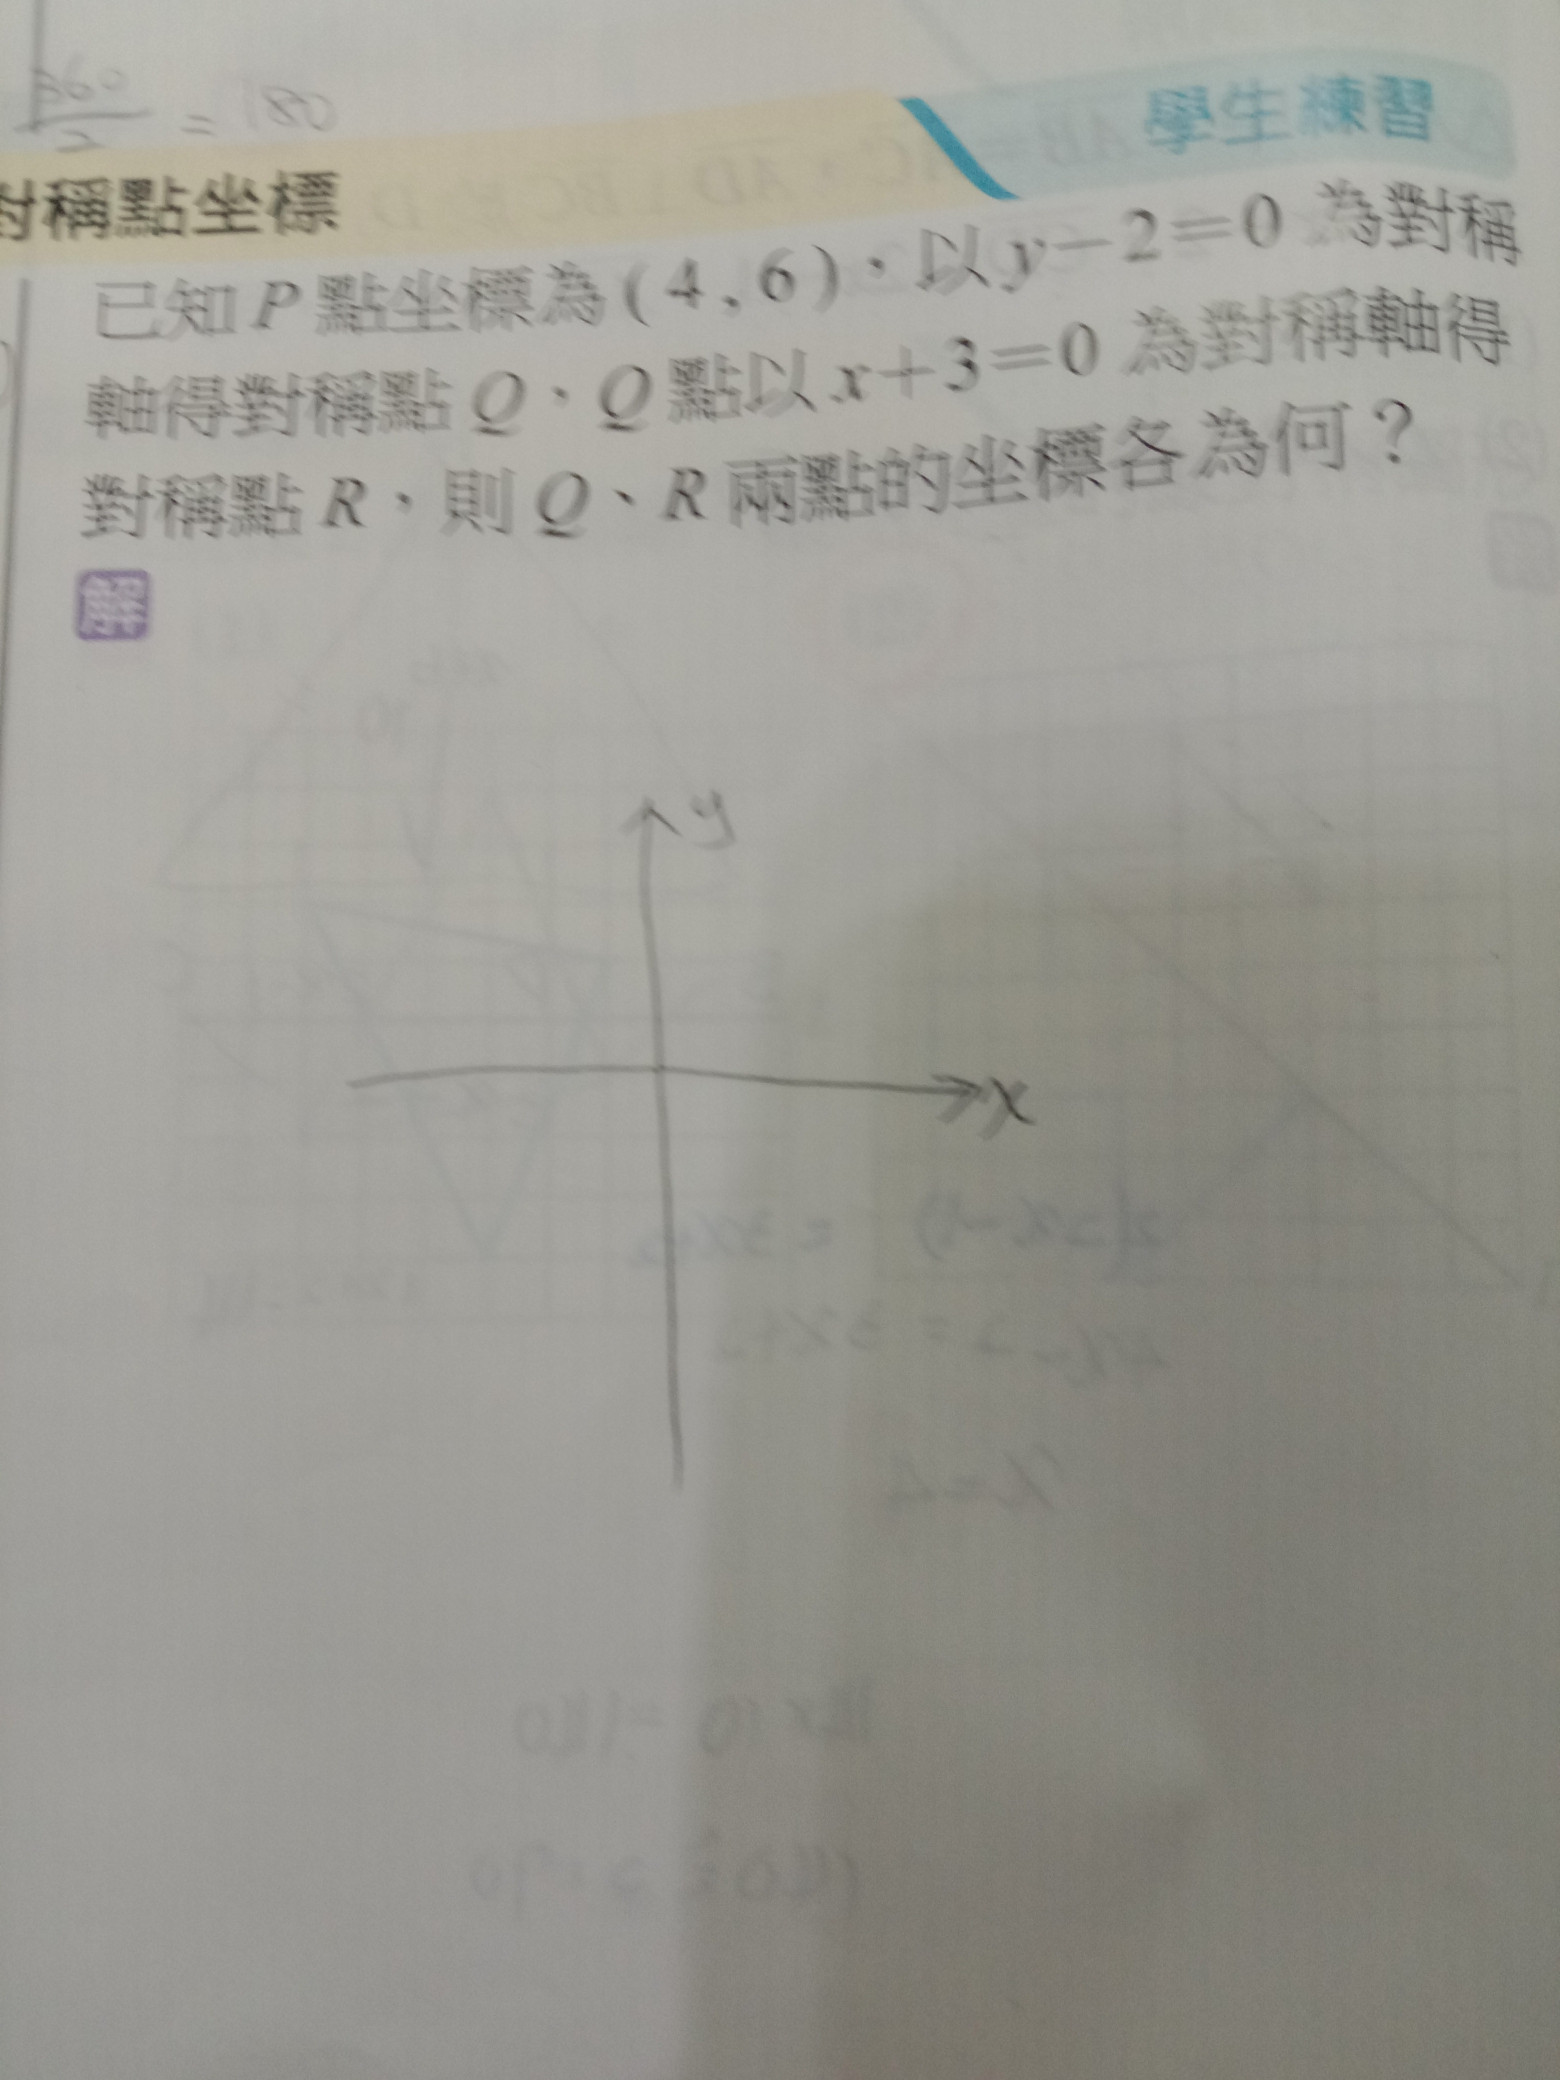 360/2 = 180
學生練習
對稱點坐標
已知P點坐標為(4,6),以y−2=0為對稱
軸得對稱點Q,Q點以x+3=0為對稱軸得
對稱點R,則Q、R兩點的坐標各為何?
解
y
x